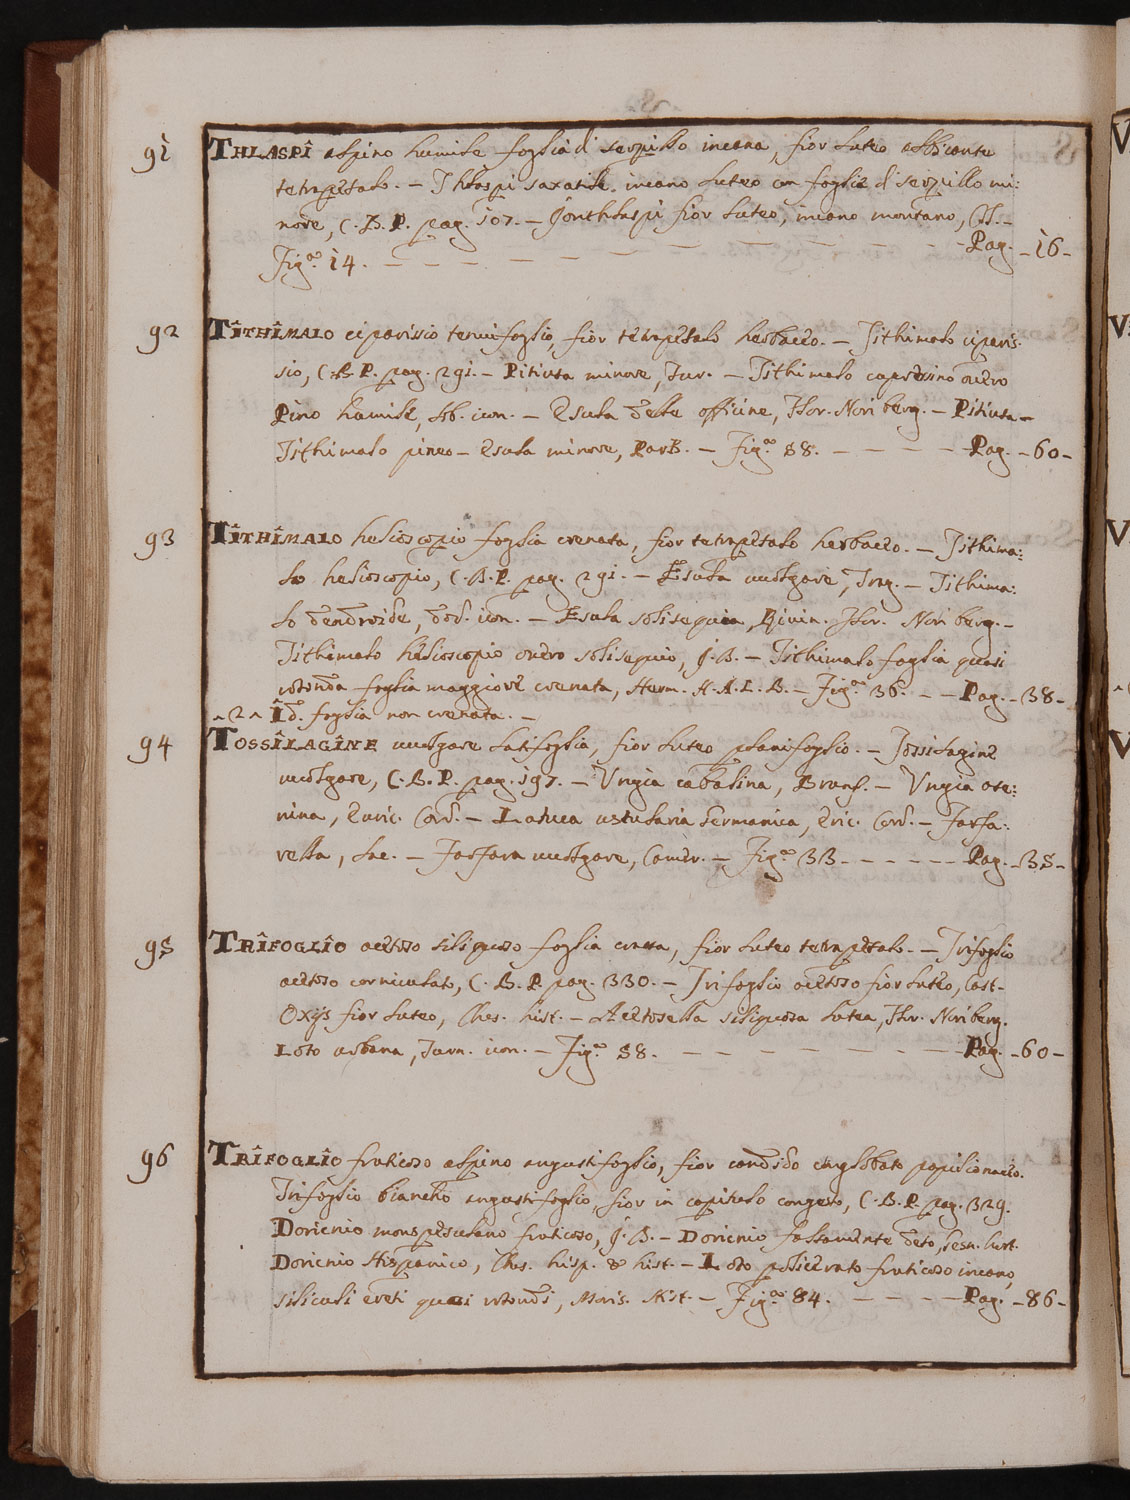 91 THLASPI alpino humile foglia di serpillo incana, fior luteo albicante
tetrapetalo. – Thlaspi saxatile incano luteo con foglia di serpillo mi:
nore, C. B. P. pag. 107. – Jonthlaspi fior luteo, incano montano, Cl. –
Fig.ª 14. – Pag. – 16 –
92 TITHIMALO ciparissio tenuifoglio, fior tetrapetalo herbaceo. – Tithimalo ciparis:
sio, C. B. P. pag. 291. – Pitiusa minore, Tur. – Tithimalo capressino overo
Pino humile, lob. icon. – Esula delle officine, Hor. Noriberg. – Pitiusa –
Tithimalo pineo – Esula minore, ParB. – Fig.ª 58. – Pag. – 60 –
93 TITHIMALO helioscopio foglia crenata, fior tetrapetalo herbaceo. – Tithima:
lo helioscopio, C. B. P. pag. 291. – Esula vuolgare, Trag. – Tithima:
lo dendroide, dod. icon. – Esula solisequia, Rivin. Hor. Noriberg. –
Tithimalo helioscopio overo solisequio, J. B. – Tithimalo foglia quasi
rotonda foglia maggiore crenata, Herm. H. A. L. B. – Fig.ª 36. – – Pag. – 38 –
^2^ Id. foglia non crenata. –
94 TOSSILAGINE vuolgare latifoglia, fior luteo planifoglio. – Tossilagine
vuolgare, C. B. P. pag. 197. – Ungia cabalina, Brunf. – Ungia ase:
nina, Euric. Cord. – Latuca ustularia Germanica, Eric. Cord. – Farfa:
rella, Lac. – Farfara vuolgare, Camer. – Fig.ª 33 – Pag. – 35 –
95 TRIFOGLIO acetoso siliquoso foglia cordata, fior luteo tetrapetalo. – Trifoglio
acetoso corniculato, C. B. P. pag. 330. – Trifoglio acetoso fior luteo, Cast –
Oxijs fior luteo, Clus. hist. – Acetosella siliquosa lutea, Hor. Noriberg.
Loto urbana, Turn. icon. – Fig.ª 58. – Pag. – 60 –
96 TRIFOGLIO fruticoso alpino angustifoglio, fior candido conglobato papilionaceo.
Trifoglio biancho angustifoglio, fior in capitulo congesto, C. B. P. pag. 329.
Doricnio monspesulano fruticoso, J. B. – Doricnio falsamente deto, Gesn. hort.
Doricnio Hispanico, Clus. hisp. & hist. – Loto policerato fruticoso incano,
siliculi ereti quasi rotondi, Moris. Hist. – Fig.ª 84. – Pag. – 86 –